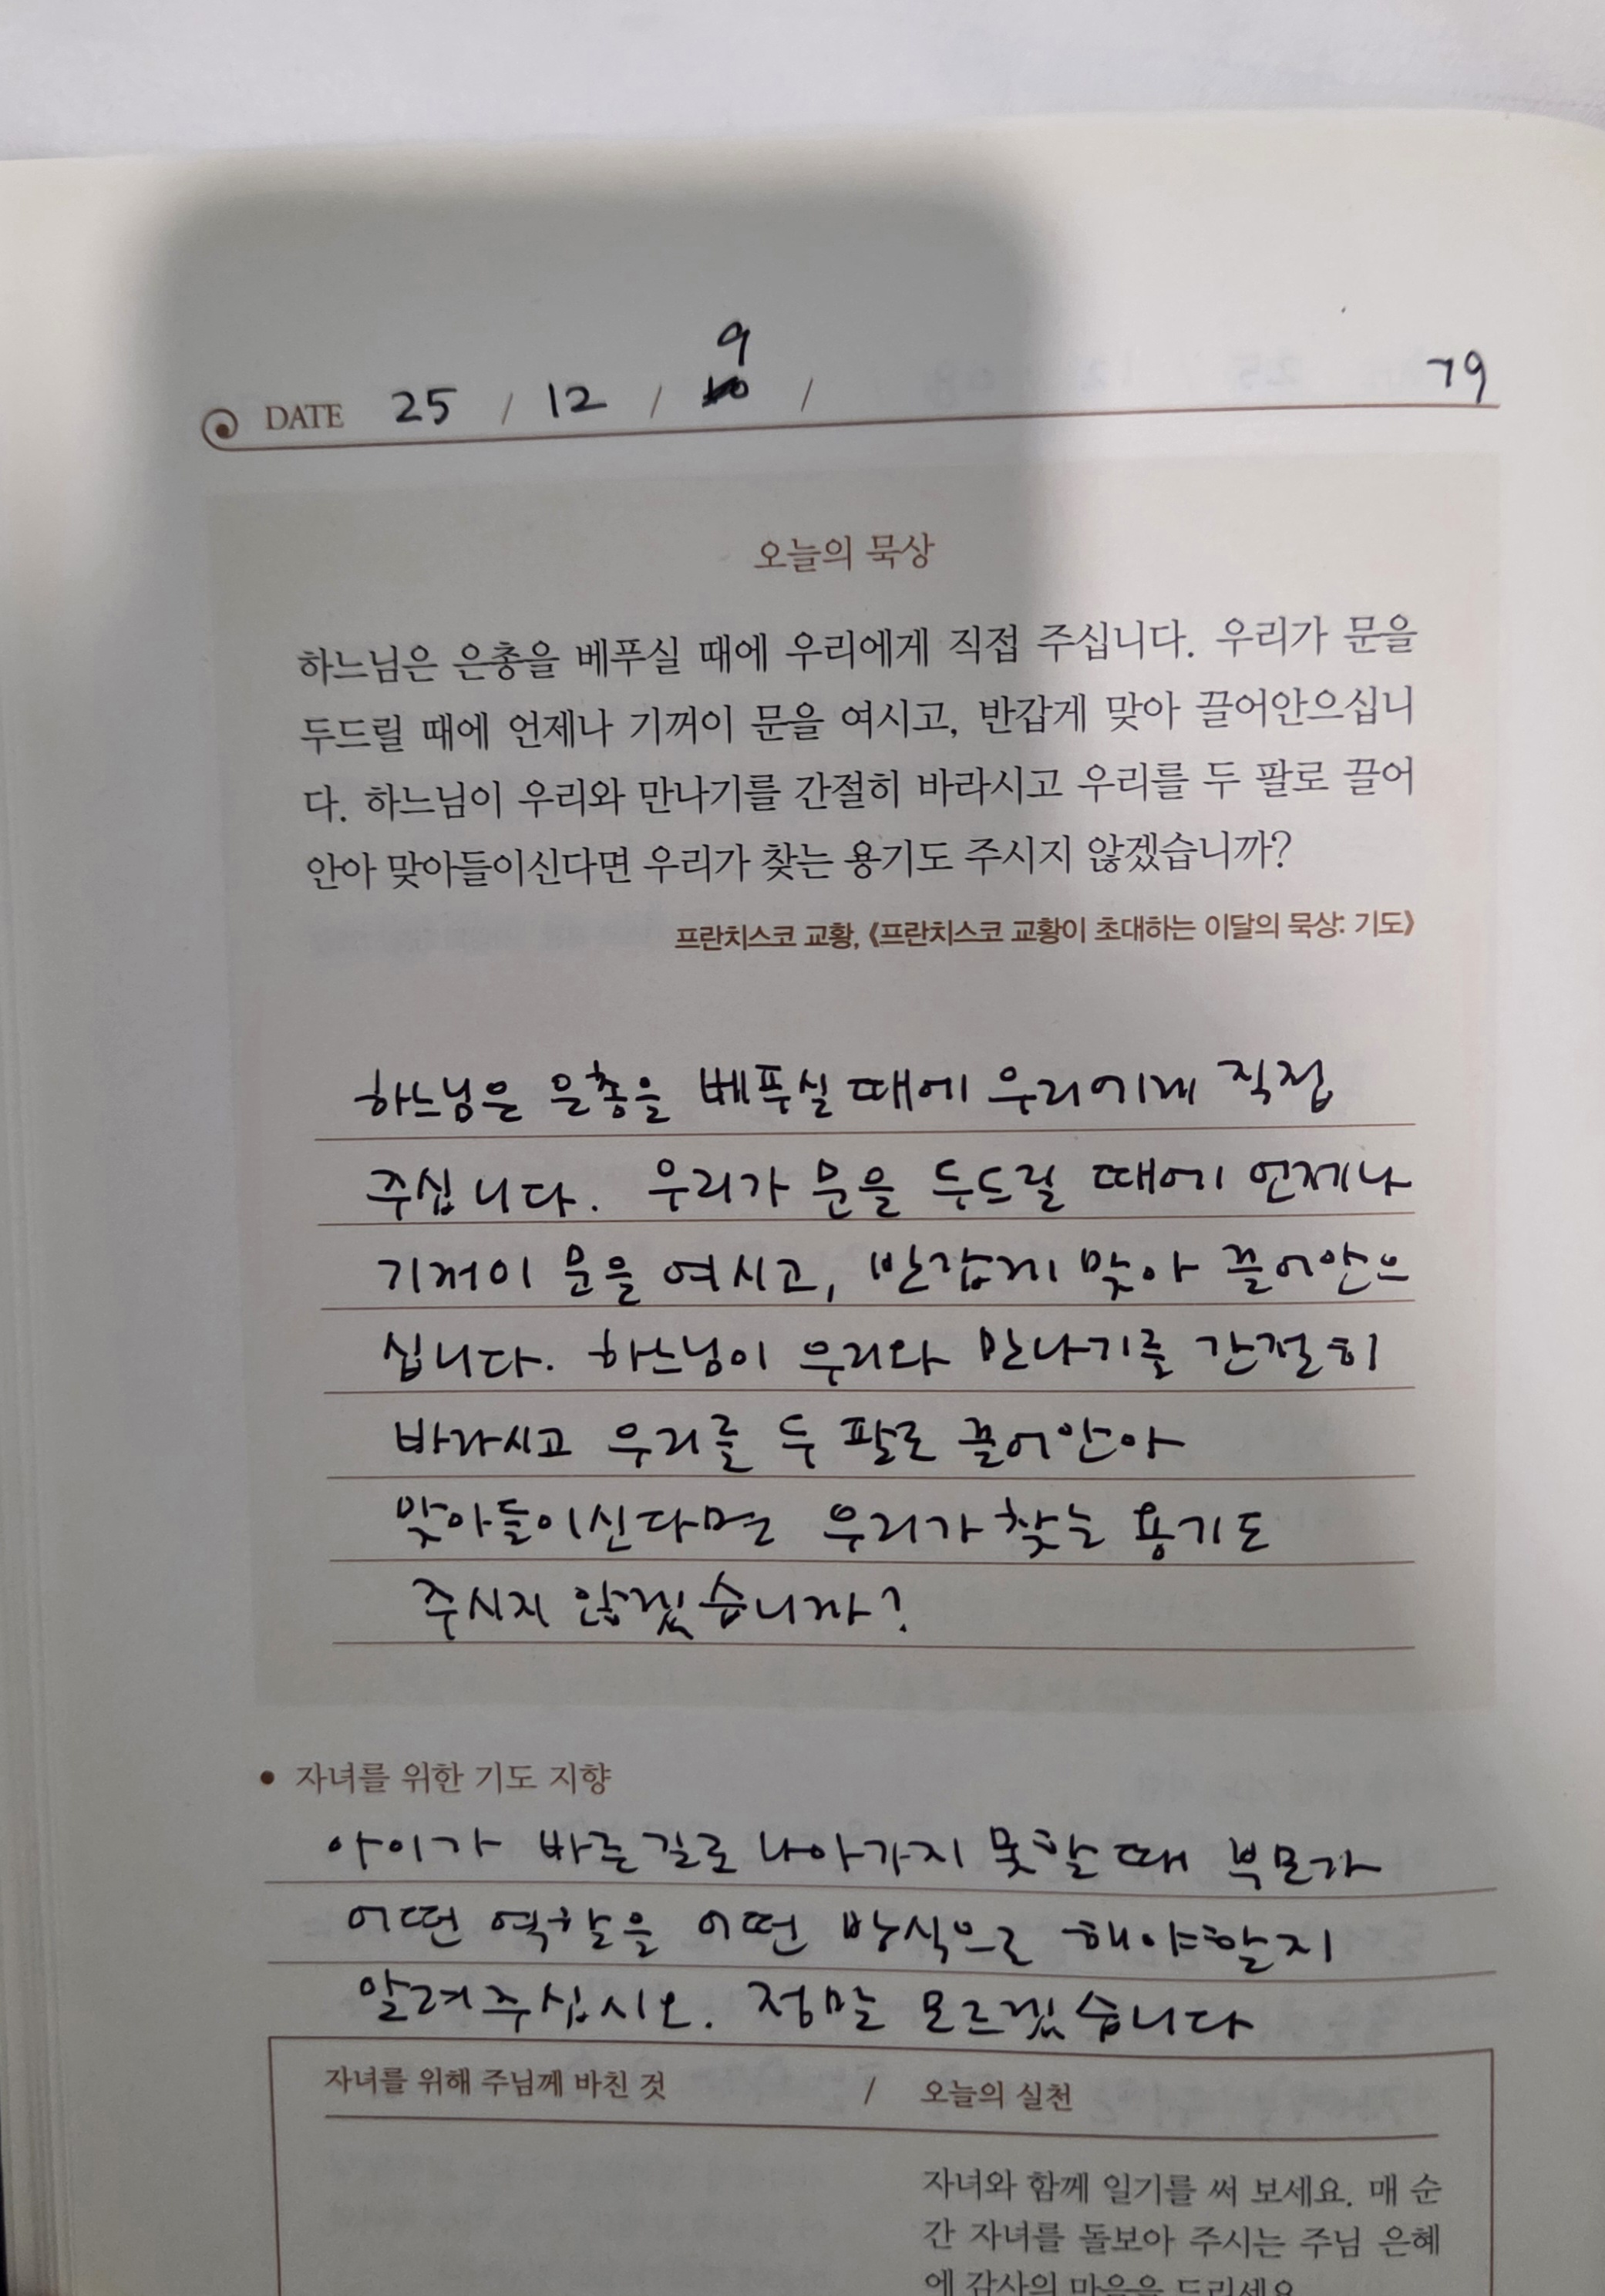 9
DATE 25 / 12 / 10 / 79
오늘의 묵상
하느님은 은총을 베푸실 때에 우리에게 직접 주십니다. 우리가 문을
두드릴 때에 언제나 기꺼이 문을 여시고, 반갑게 맞아 끌어안으십니
다. 하느님이 우리와 만나기를 간절히 바라시고 우리를 두 팔로 끌어
안아 맞아들이신다면 우리가 찾는 용기도 주시지 않겠습니까?
프란치스코 교황, 《프란치스코 교황이 초대하는 이달의 묵상: 기도》
하느님은 은총을 베푸실 때에 우리에게 직접
주십니다. 우리가 문을 두드릴 때에 언제나
기꺼이 문을 여시고, 반갑게 맞아 끌어안으
십니다. 하느님이 우리와 만나기를 간절히
바라시고 우리를 두 팔로 끌어안아
맞아들이신다면 우리가 찾는 용기도
주시지 않겠습니까?
• 자녀를 위한 기도 지향
아이가 바른길로 나아가지 못할 때 부모가
어떤 역할을 어떤 방식으로 해야할지
알려주십시오. 정말 모르겠습니다
자녀를 위해 주님께 바친 것 / 오늘의 실천
자녀와 함께 일기를 써 보세요. 매 순
간 자녀를 돌보아 주시는 주님 은혜
에 감사의 마음을 드리세요